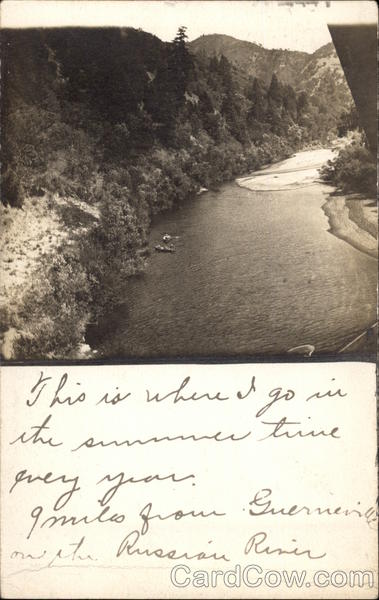 This is where I go in
the summer time
every year.
9 miles from Guerneville
on the Russian River
CardCow.com